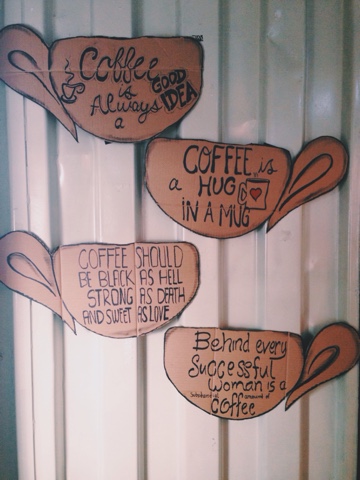 Coffee
is
Always
a
GOOD
IDEA
COFFEE is
a HUG
IN A MUG
COFFEE SHOULD
BE BLACK AS HELL
STRONG AS DEATH
AND SWEET AS LOVE
Behind every
Successful
Woman is a
substantial amount of
coffee